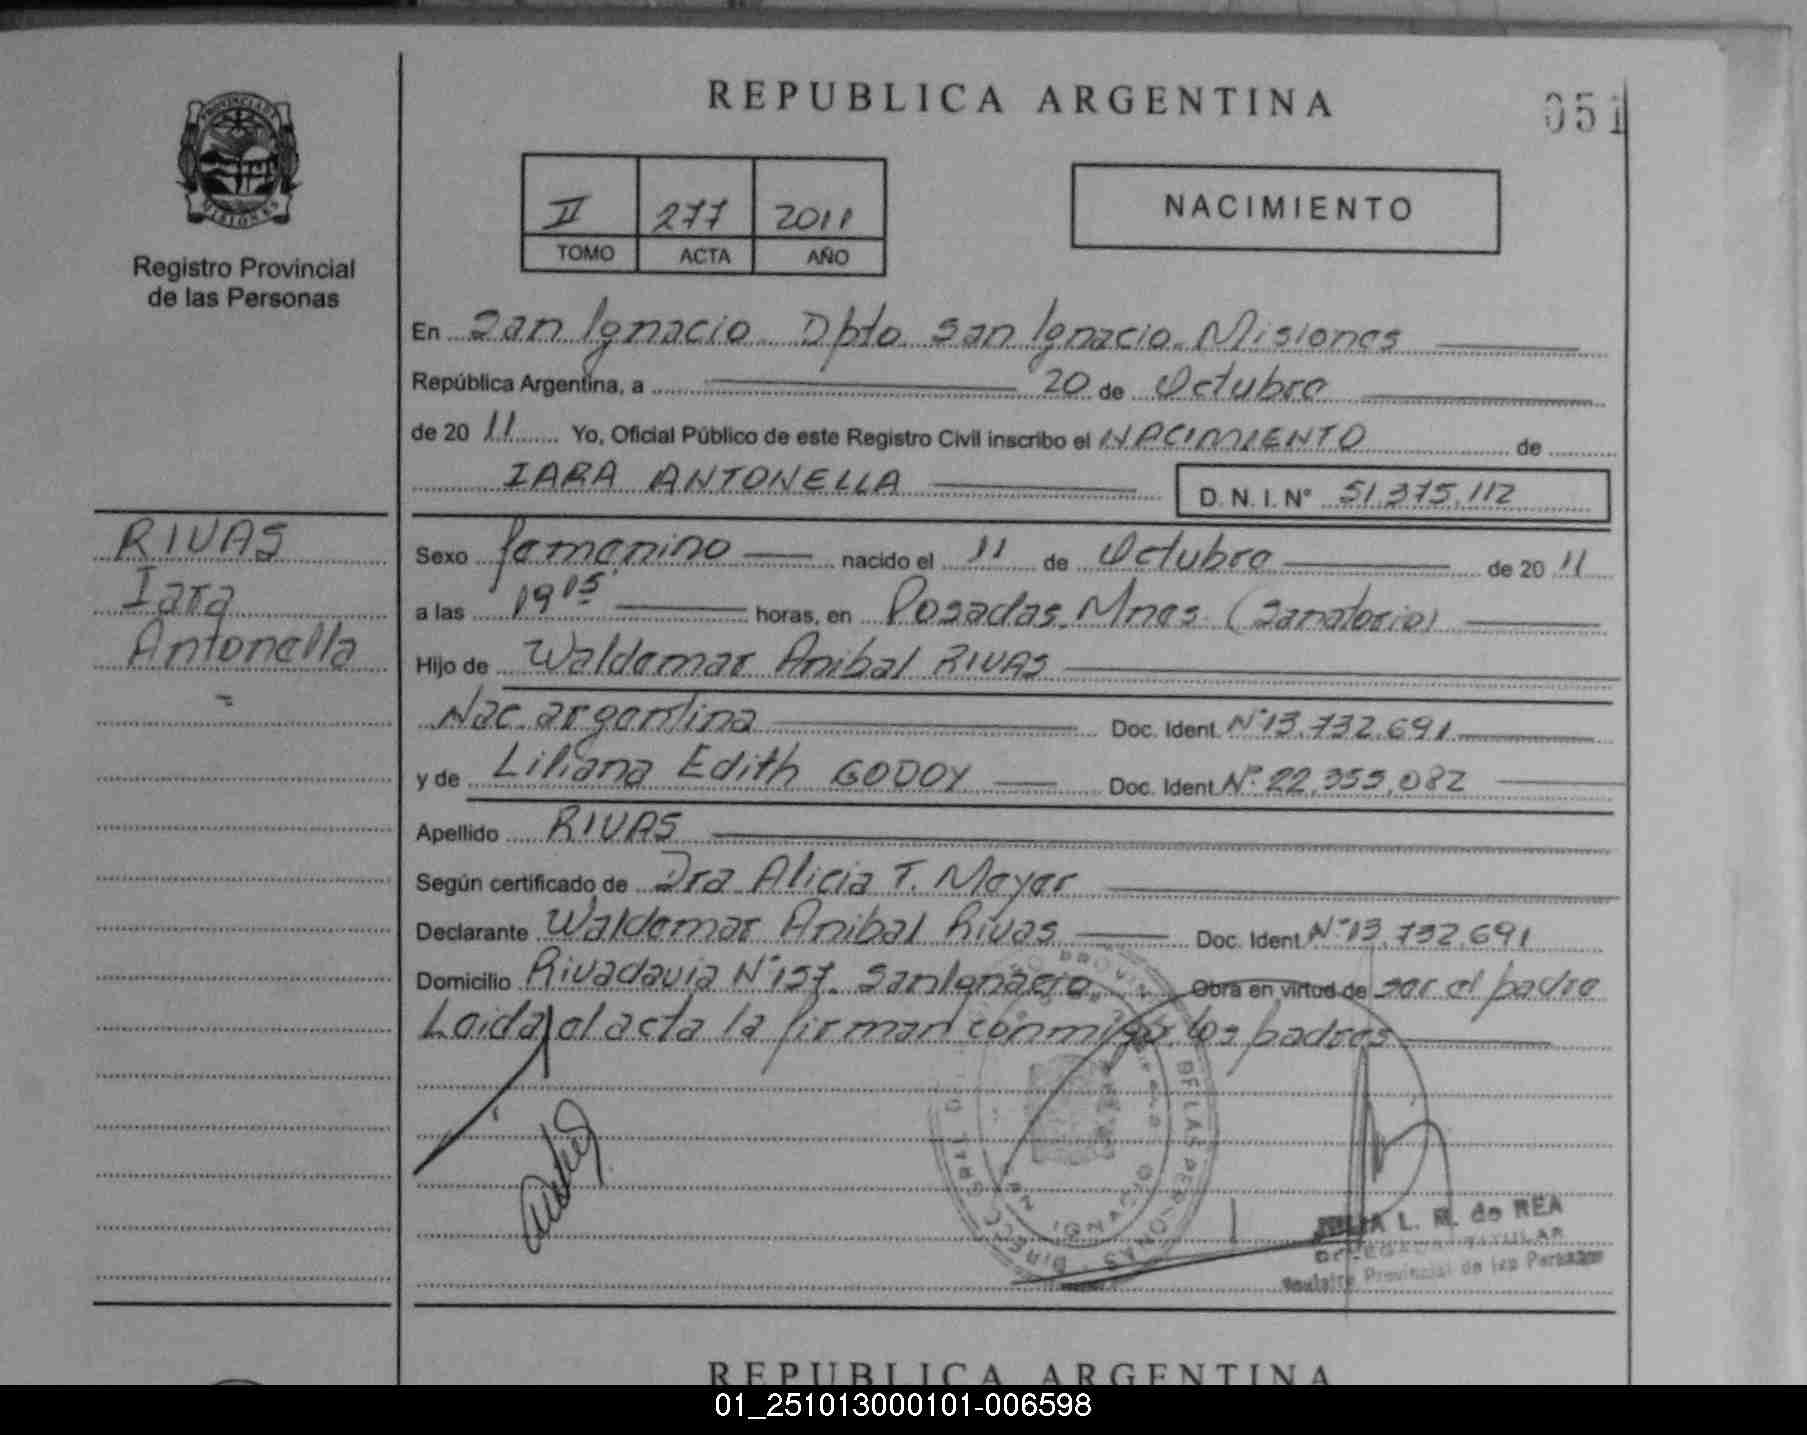 REPUBLICA ARGENTINA
051
PROVINCIA DE
MISIONES
Registro Provincial
de las Personas
II 277 2011
TOMO ACTA AÑO
NACIMIENTO
En San Ignacio Dpto San Ignacio. Misiones
República Argentina, a 20 de Octubre
de 20 11 Yo, Oficial Público de este Registro Civil inscribo el NACIMIENTO de
IARA ANTONELLA D. N. I. N° 51.375.112
RIVAS
Iara
Antonella
Sexo femenino nacido el 11 de Octubre de 20 11
a las 19 15 horas, en Posadas. Mnes. (Sanatorio)
Hijo de Waldemar Anibal RIVAS
Nac. argentina Doc. Ident. N° 13.732.691
y de Liliana Edith GODOY Doc. Ident. N° 22.355.082
Apellido RIVAS
Según certificado de Dra Alicia T. Meyer
Declarante Waldemar Anibal Rivas Doc. Ident. N° 13.732.691
Domicilio Rivadavia N° 157. San Ignacio Obra en virtud de ser el padre
Leida el acta la firman conmigo los padres
L. R. de REA
TITULAR
Provincial de las Personas
REPUBLICA ARGENTINA
01_251013000101-006598